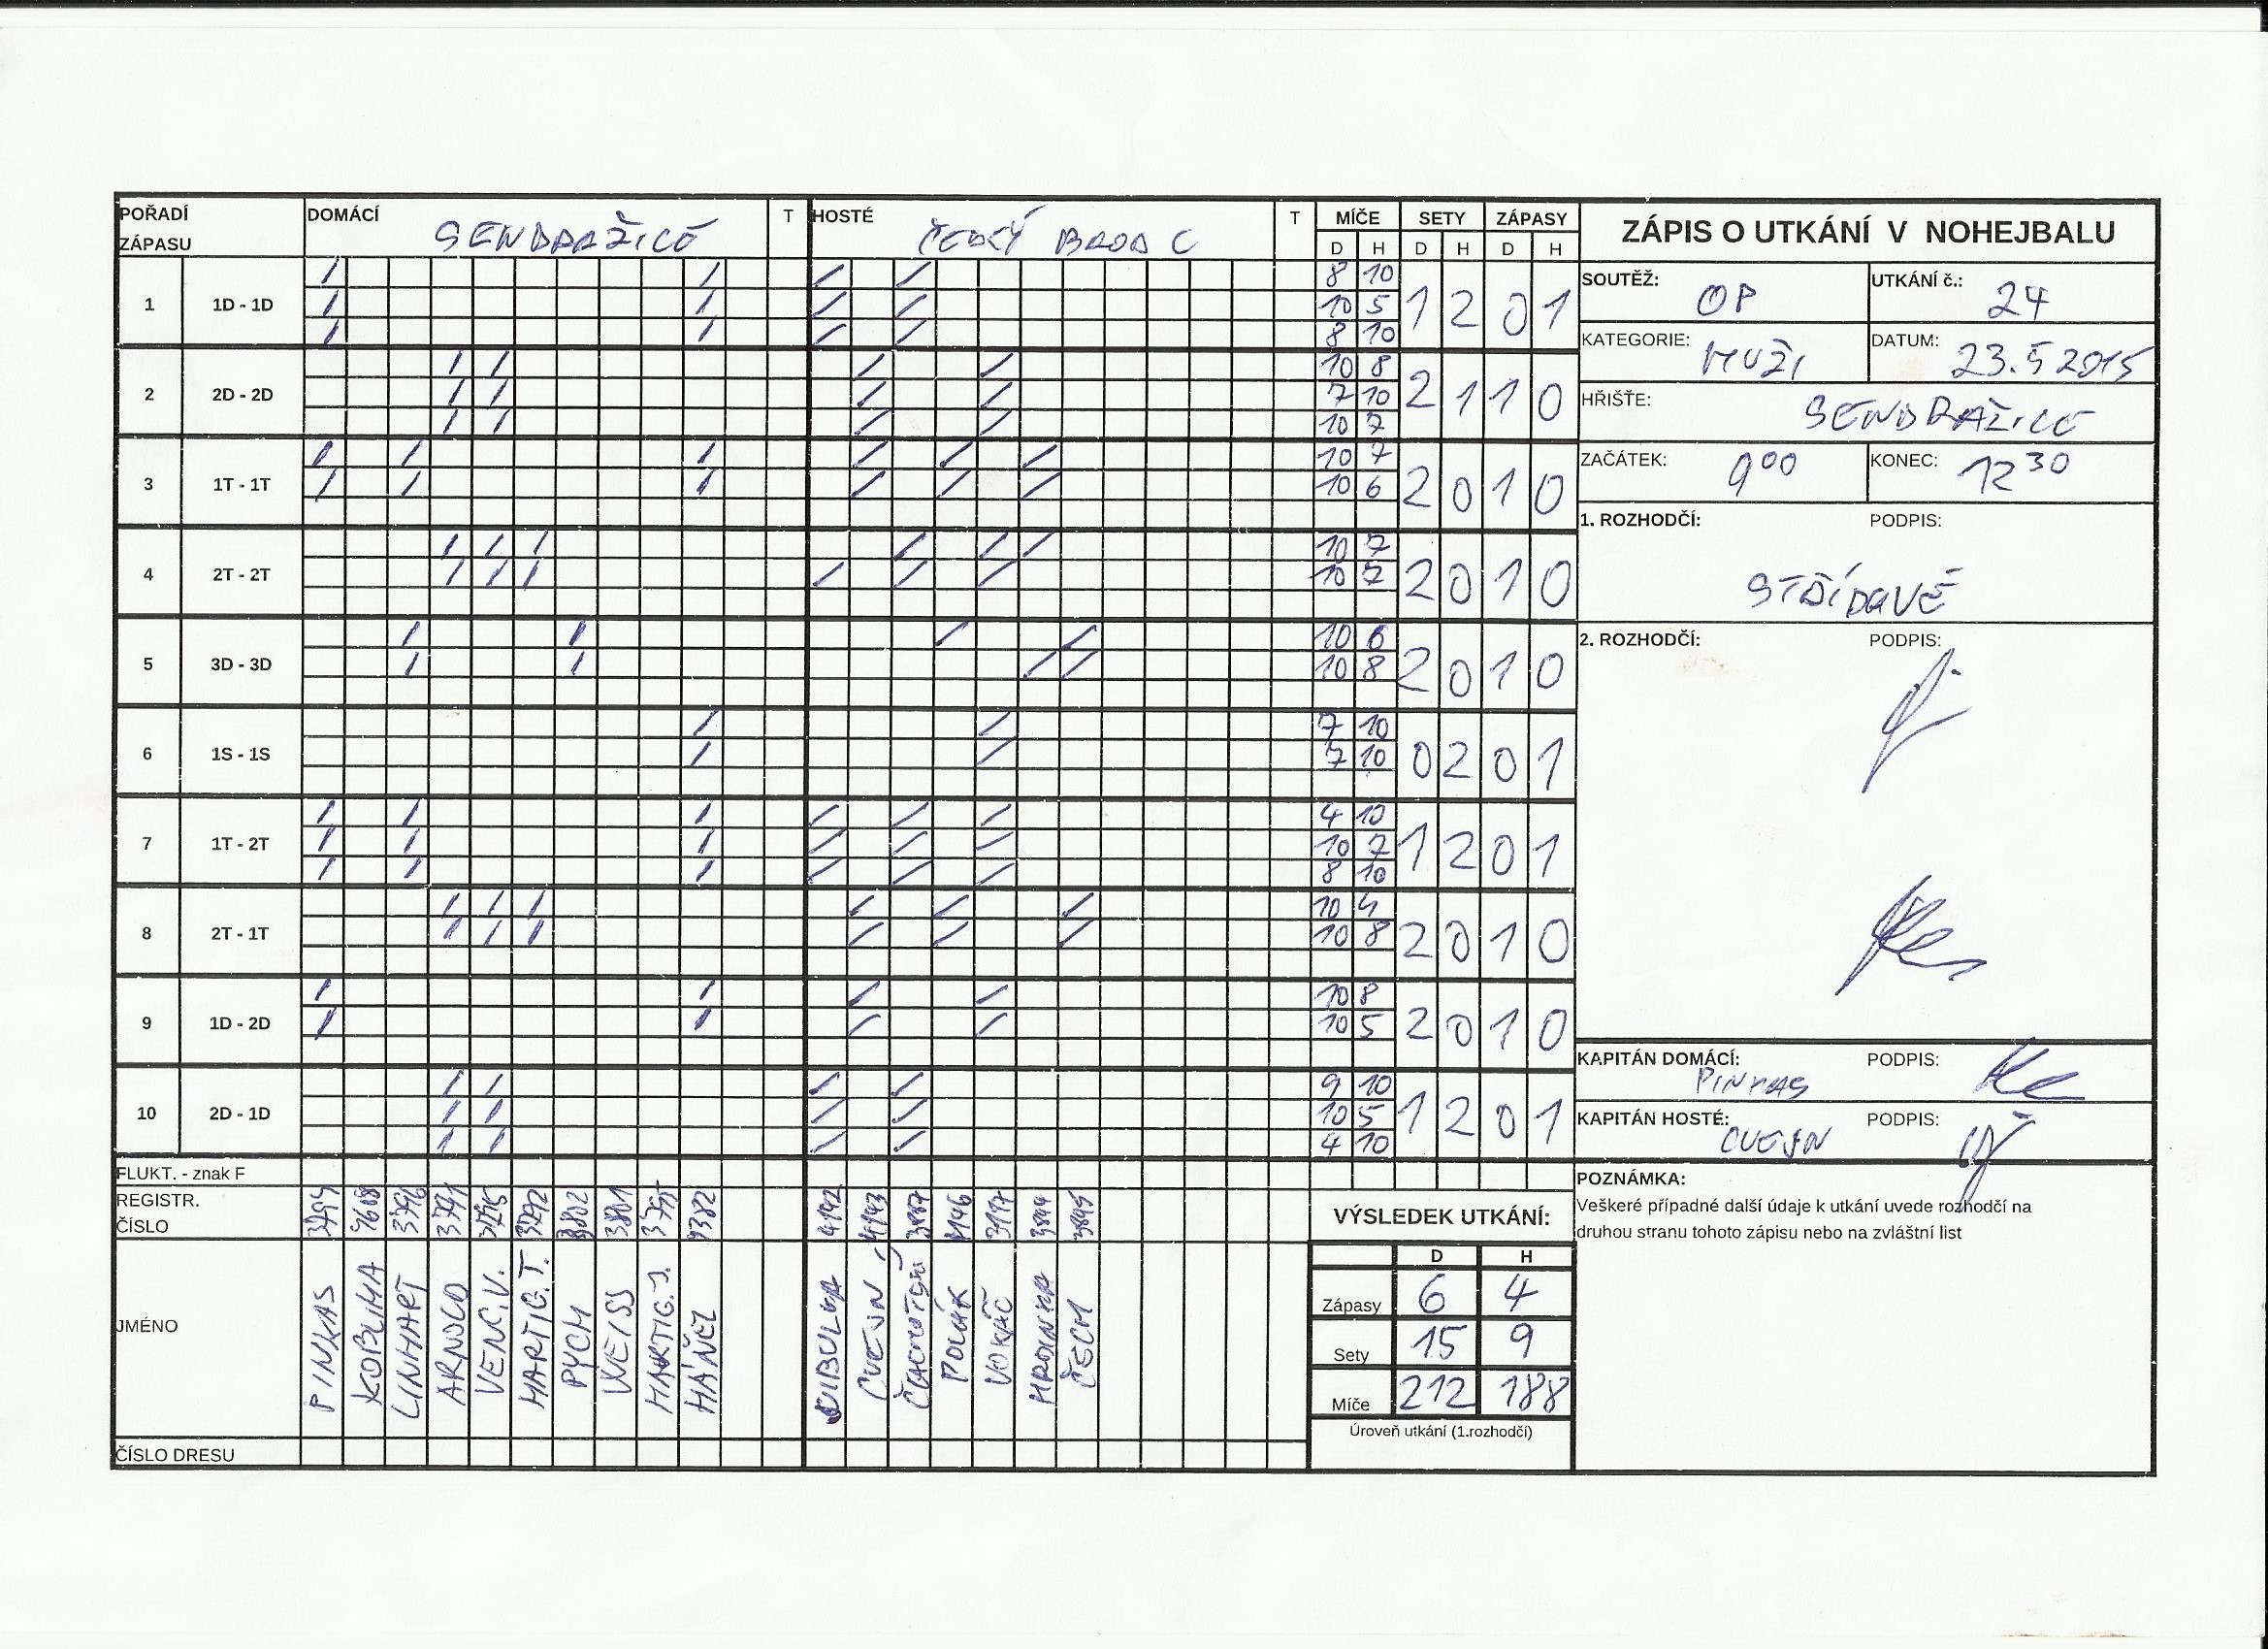 POŘADÍ ZÁPASU DOMÁCÍ SENDRAŽICE T HOSTÉ ČESKÝ BROD C T MÍČE SETY ZÁPASY
D H D H D H
1 1D - 1D 8 10 1 2 0 1
10 5
8 10
2 2D - 2D 10 8 2 1 1 0
7 10
10 7
3 1T - 1T 10 7 2 0 1 0
10 6
4 2T - 2T 10 7 2 0 1 0
10 7
5 3D - 3D 10 6 2 0 1 0
10 8
6 1S - 1S 7 10 0 2 0 1
7 10
7 1T - 2T 4 10 1 2 0 1
10 7
8 10
8 2T - 1T 10 4 2 0 1 0
10 8
9 1D - 2D 10 8 2 0 1 0
10 5
10 2D - 1D 9 10 1 2 0 1
10 5
4 10
FLUKT. - znak F
REGISTR. ČÍSLO 3802 3801 4142 4143 3147 3844 3845
JMÉNO PINKAS KOBLIHA LINHART ARNOLD VENC.V. HARTIG.T. PYCH WEISS HARTIG.J. HÁNĚL CIBULKA CVEJN POLÁK VOKÁČ HRDINKA ČECH
ČÍSLO DRESU
VÝSLEDEK UTKÁNÍ:
D H
Zápasy 6 4
Sety 15 9
Míče 212 188
Úroveň utkání (1.rozhodčí)
ZÁPIS O UTKÁNÍ V NOHEJBALU
SOUTĚŽ: OP UTKÁNÍ č.: 24
KATEGORIE: MUŽI DATUM: 23.5 2015
HŘIŠTE: SENDRAŽICE
ZAČÁTEK: 9 00 KONEC: 12 30
1. ROZHODČÍ: PODPIS:
STŘÍDAVĚ
2. ROZHODČÍ: PODPIS:
KAPITÁN DOMÁCÍ: PINKAS PODPIS:
KAPITÁN HOSTÉ: CVEJN PODPIS:
POZNÁMKA:
Veškeré případné další údaje k utkání uvede rozhodčí na
druhou stranu tohoto zápisu nebo na zvláštní list